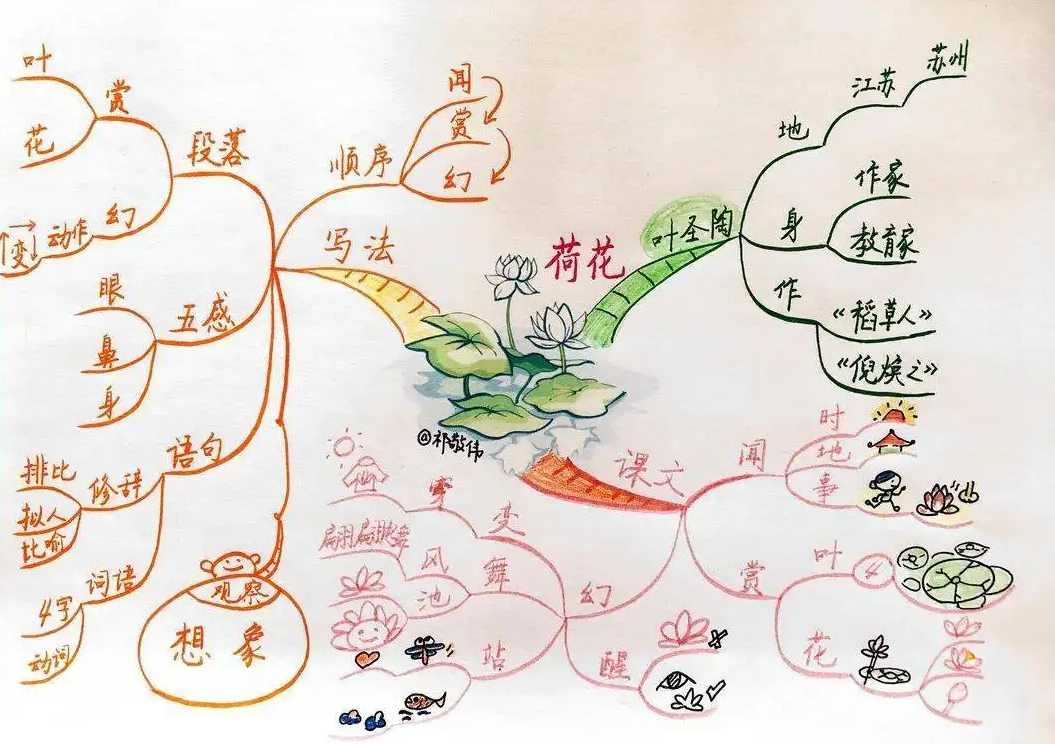 荷花
叶圣陶
地
江苏
苏州
身
作家
教育家
作
《稻草人》
《倪焕之》
课文
闻
时
地
事
赏
叶
4
花
幻
变
穿
舞
翩翩
风
池
站
醒
写法
顺序
闻
赏
幻
段落
赏
叶
花
幻
动作
变
五感
眼
鼻
身
语句
修辞
排比
拟人
比喻
词语
4字
动词
观察
想象
@祁敬伟